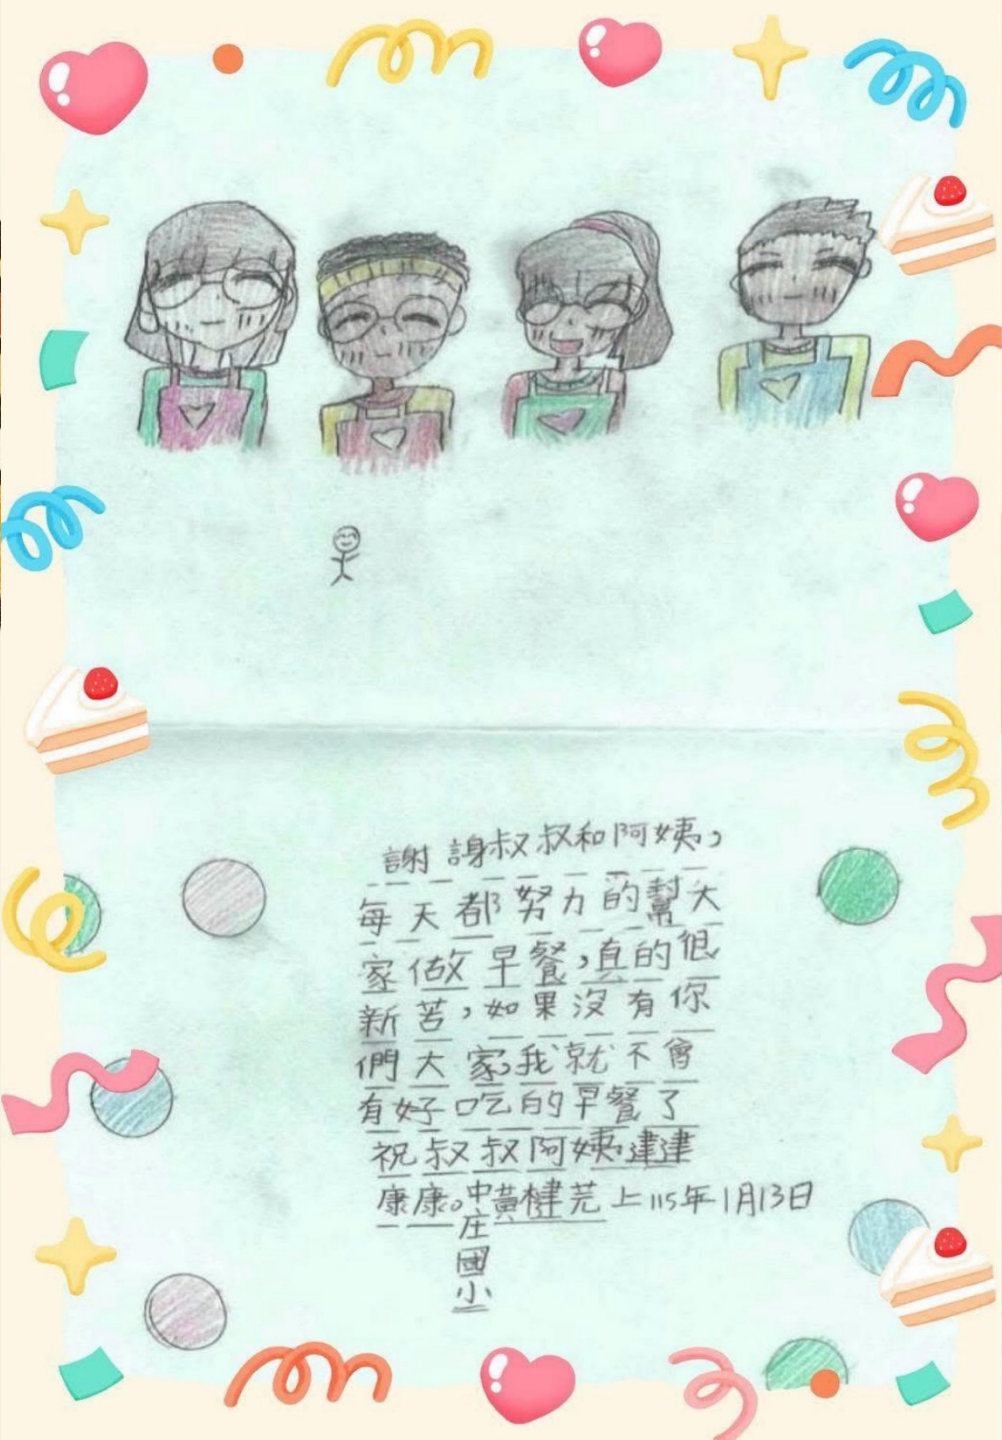 謝謝叔叔和阿姨，
每天都努力的幫大
家做早餐，真的很
新苦，如果沒有你
們大家，我就不會
有好吃的早餐了
祝叔叔阿姨建建
康康。中庄國小黃楗芫上115年1月13日